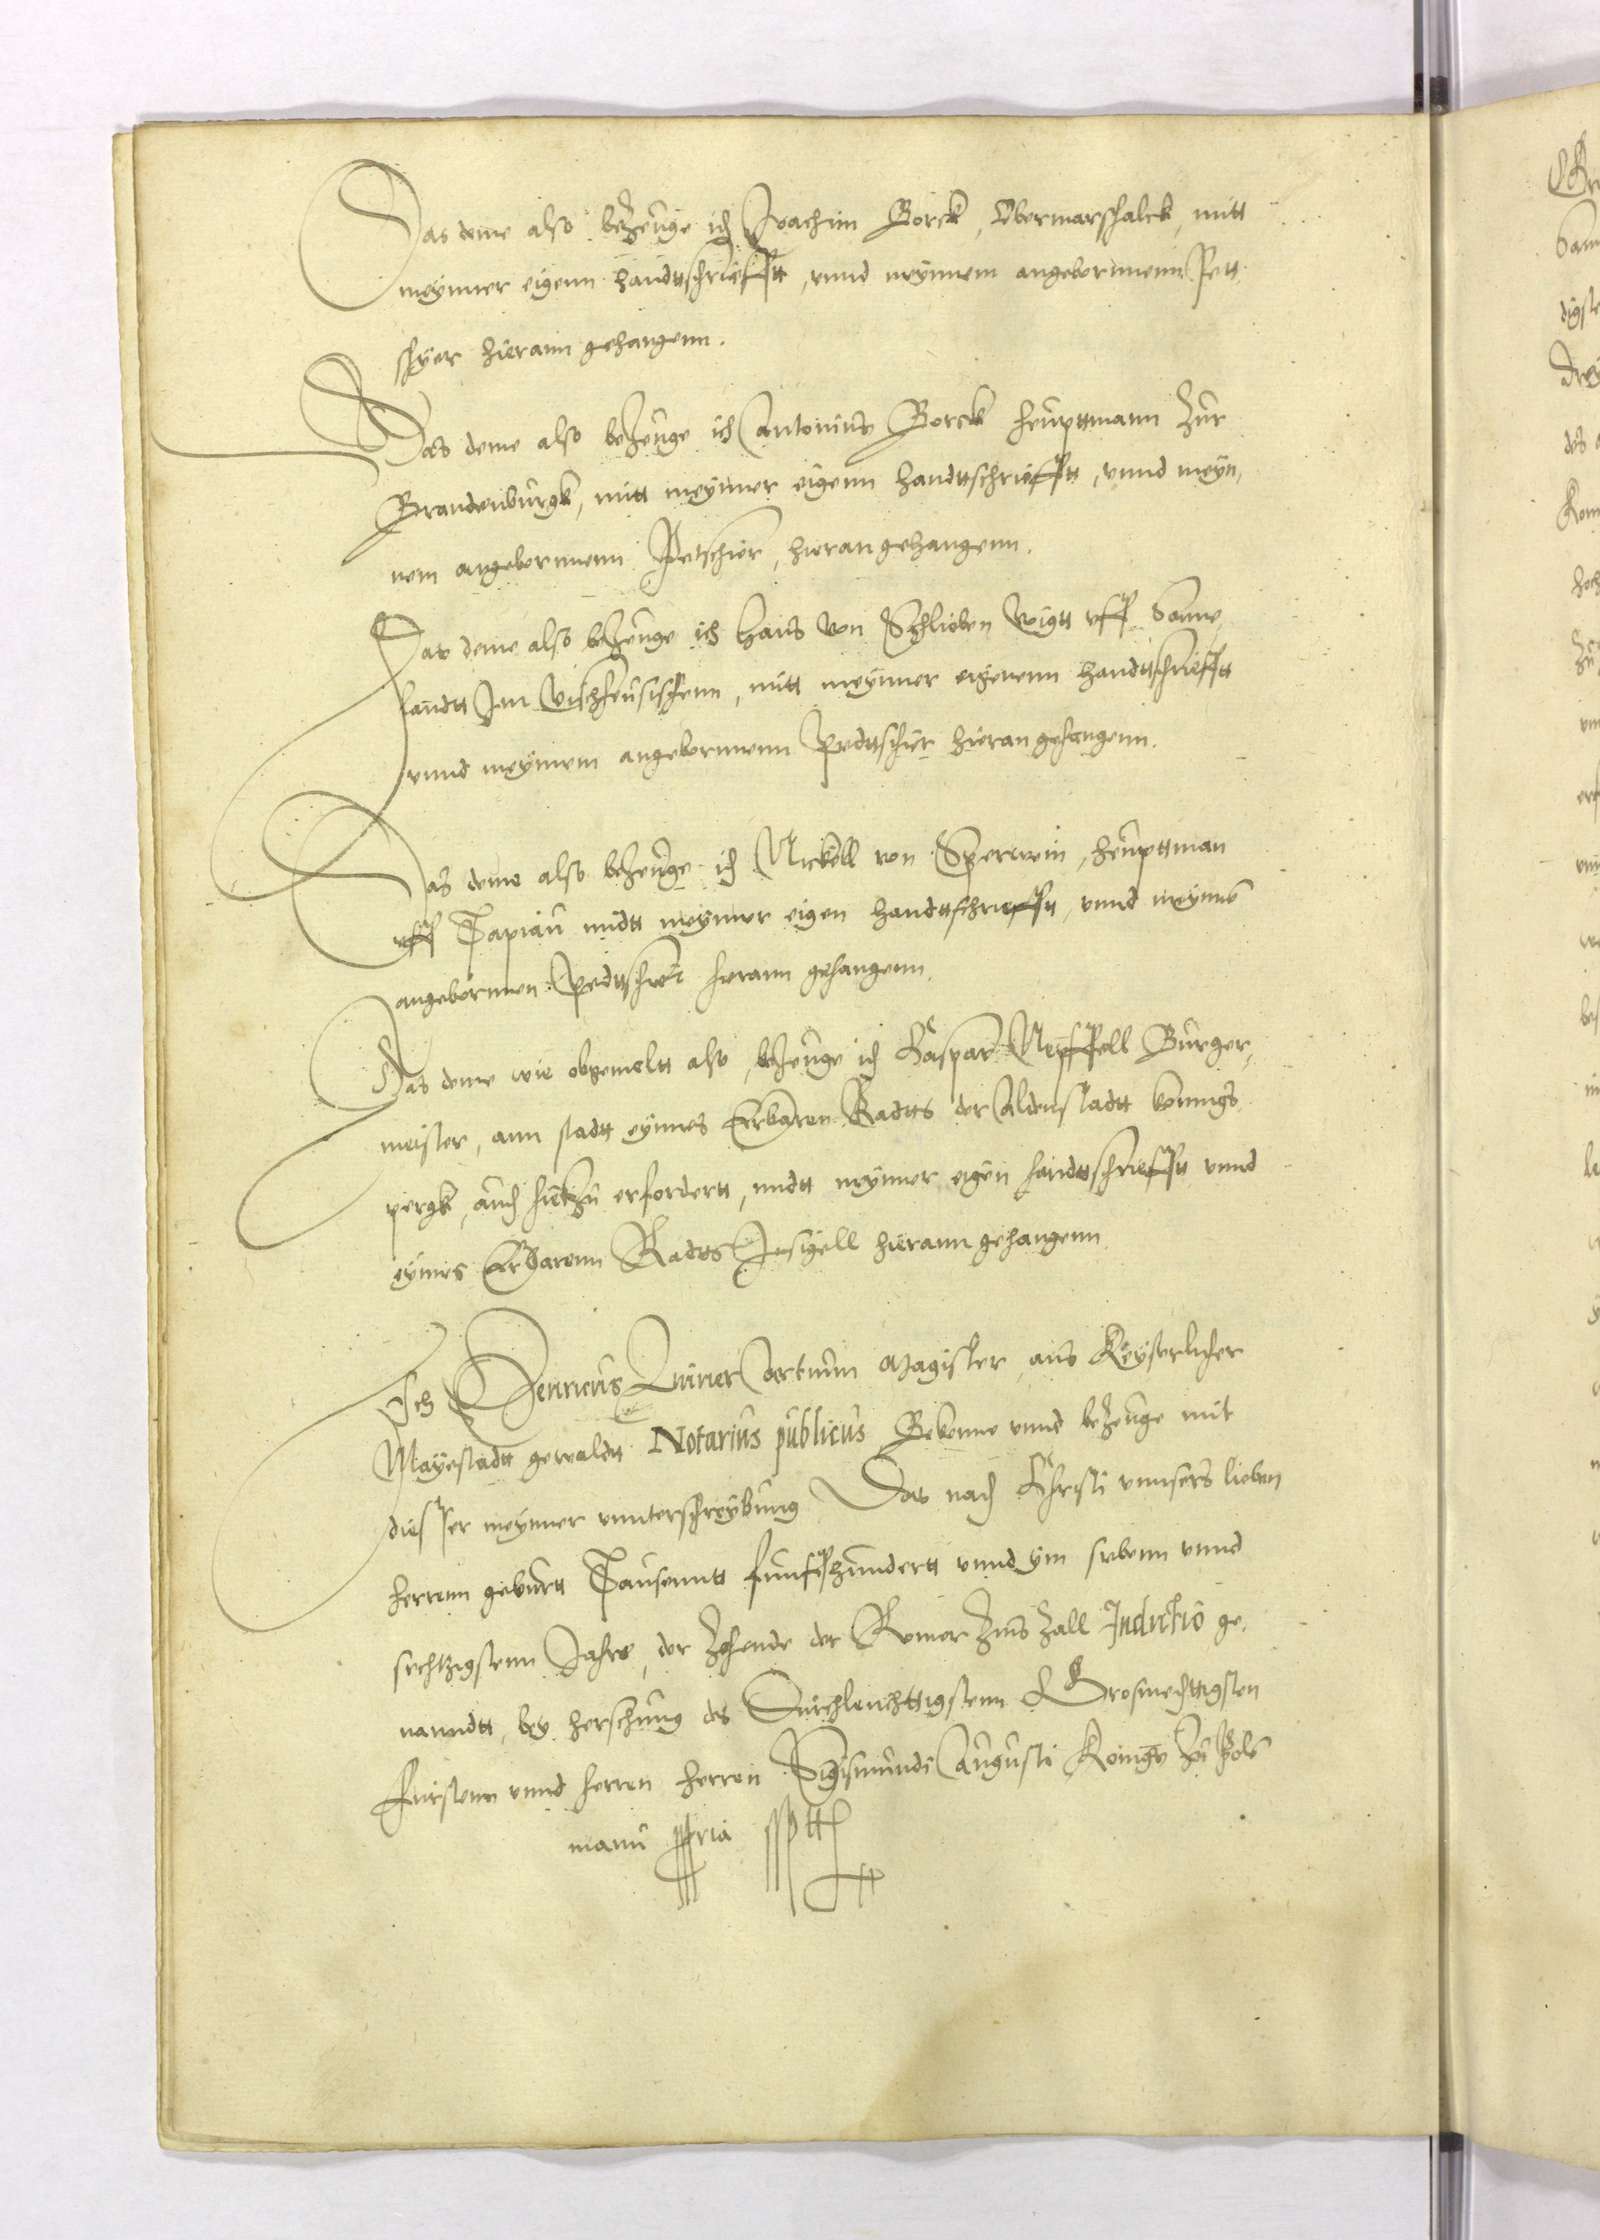 Das deme also bezeuge ich Joachim Borck, Obermarschalck, mitt
meynner eigenn handttschriefftt, vnnd meynnem angebornnenn Pett
schyer hierann gehangenn.
Das deme also bezeuge ich Antonius Borck heupttmann zur
Brandenburgk, mitt meynner eigenn handttschriefftt, vnnd meyn,
nem angebornnenn Petschier, hieran gehangenn.
Das deme also bezeuge ich Hans von Schlieben Voigtt vff Samm,
landtt Im Vischheusischenn, mitt meynner eigenenn handttschriefftt
vnnd meynnem angebornnenn Pedttschier hieran gehangenn.
Das deme also bezeuge ich Nickell von Sperwein, heupttman
vff Tapiau midtt meynner eigen handttschriefftt, vnnd meynne
angebornnen Pedttschier hierann gehangenn.
Das deme wie obgemeltt also, bezeuge ich Caspar Burger,
meister, ann stadtt eynnes Erbaren Radtts der Aldenstadtt konnigs
pergk, auch hierzu erfordertt, midtt meynner eigen handttschriefftt vnnd
eynnes Erbarenn Radtts Insigell hierann gehangenn
Ich Henricus artium Magister, aus Keyserlicher
Mayestadtt gewaldtt Notarius publicus, Bekenne vnnd bezeuge mit
diesser meynner vnnterschreybung Das nach Christi vnnsers lieben
herrenn geburtt Tausenntt funffhundertt vnnd ym siebenn vnnd
sechtzigstenn Jahre, der Zehende der Romer Zins Zall Indictio ge,
nanndtt, bey herschung des Durchleuchttigstenn Grosmechttigsten
Furstenn vnnd herren herren Sigismundi Augusti Konigs zu Pole
manu ppria sspttz